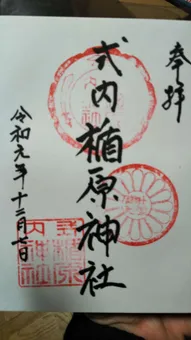 奉拝
式内楯原神社
令和元年十二月七日
式内楯原神社